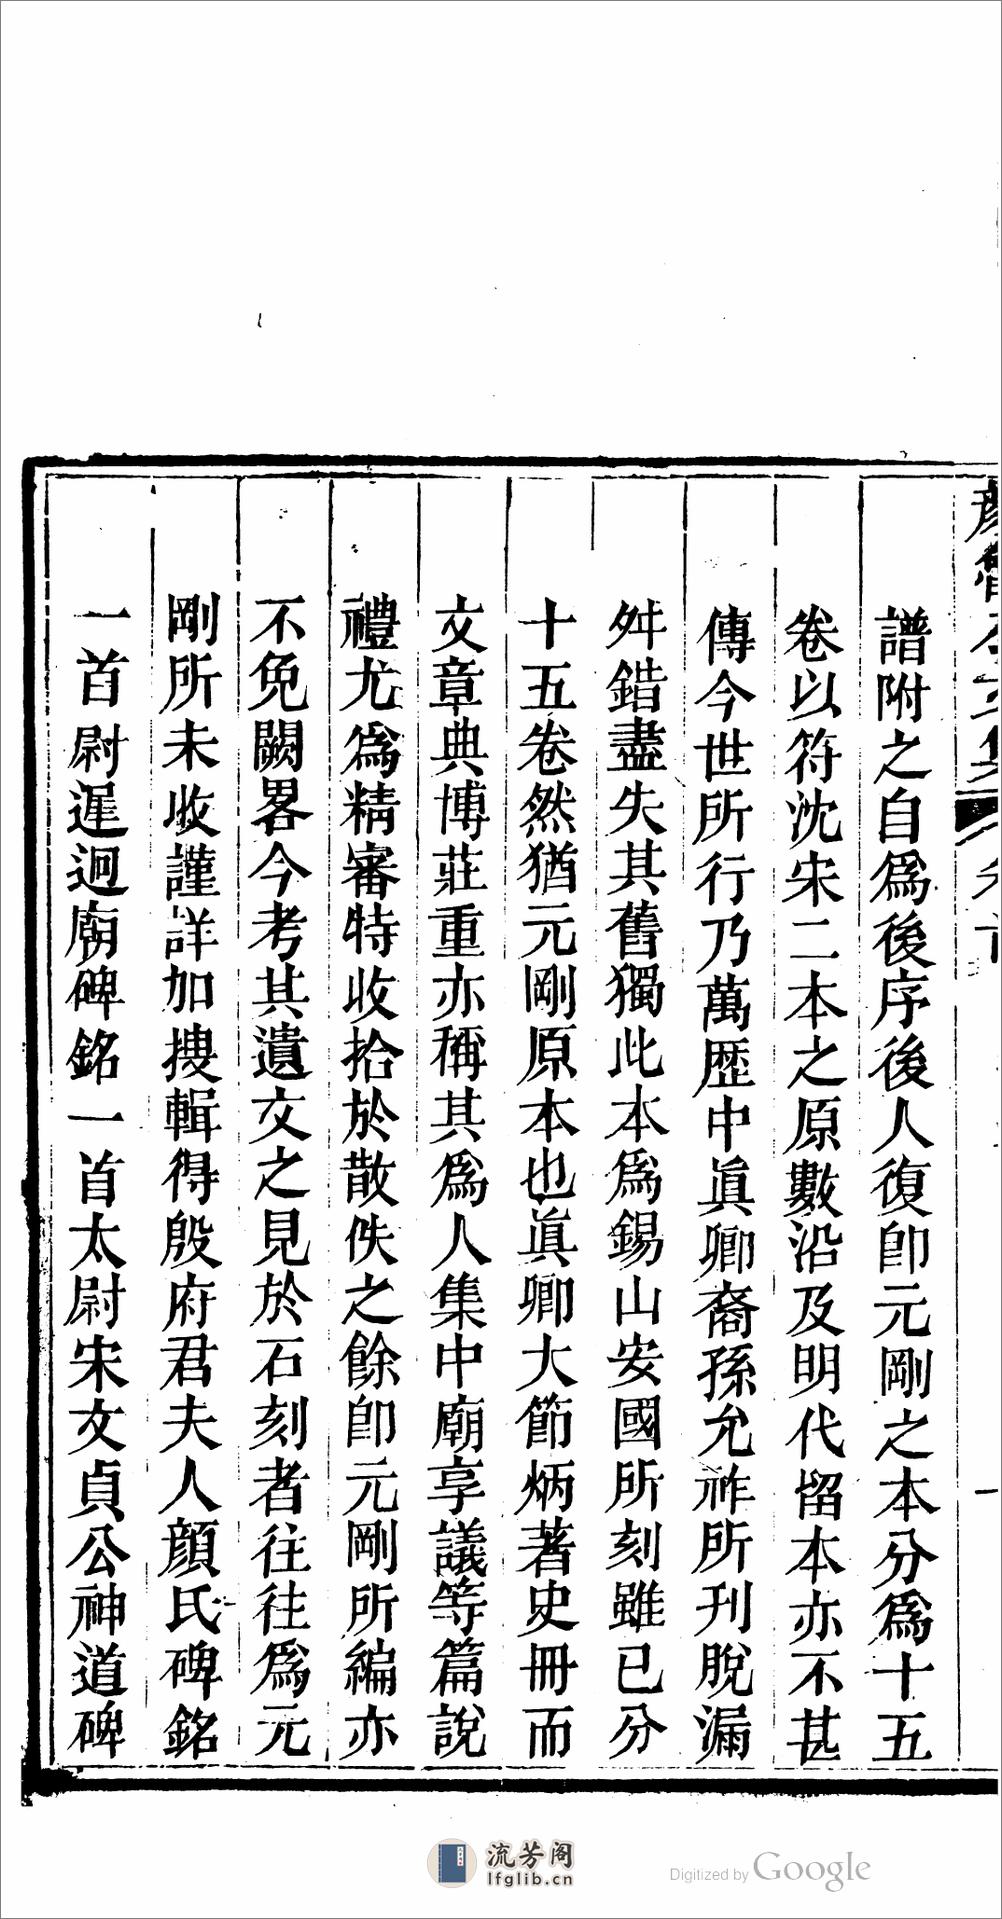 顏魯公文集 卷首 一
譜附之自爲後序後人復卽元剛之本分爲十五
卷以符沈宋二本之原數沿及明代畱本亦不甚
傳今世所行乃萬歷中眞卿裔孫允祚所刊脫漏
舛錯盡失其舊獨此本爲錫山安國所刻雖已分
十五卷然猶元剛原本也眞卿大節炳著史冊而
文章典博莊重亦稱其爲人集中廟享議等篇說
禮尤爲精審特收拾於散佚之餘卽元剛所編亦
不免闕畧今考其遺文之見於石刻者往往爲元
剛所未收謹詳加搜輯得殷府君夫人顏氏碑銘
一首尉遲迥廟碑銘一首太尉宋文貞公神道碑
流芳阁
lfglib.cn
Digitized by Google